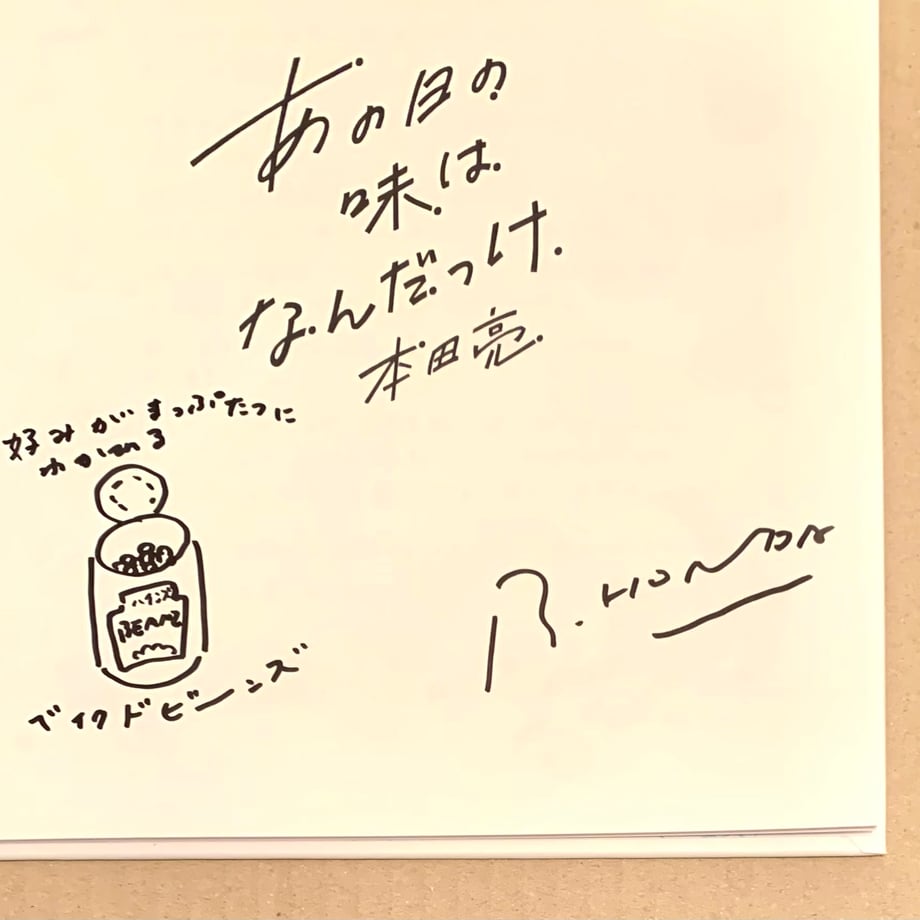 あの日の
味は
なんだっけ
本田亮
好みがまっぷたつに
わかれる
ハインズ
BEANZ
ベイクドビーンズ
R.HONDA